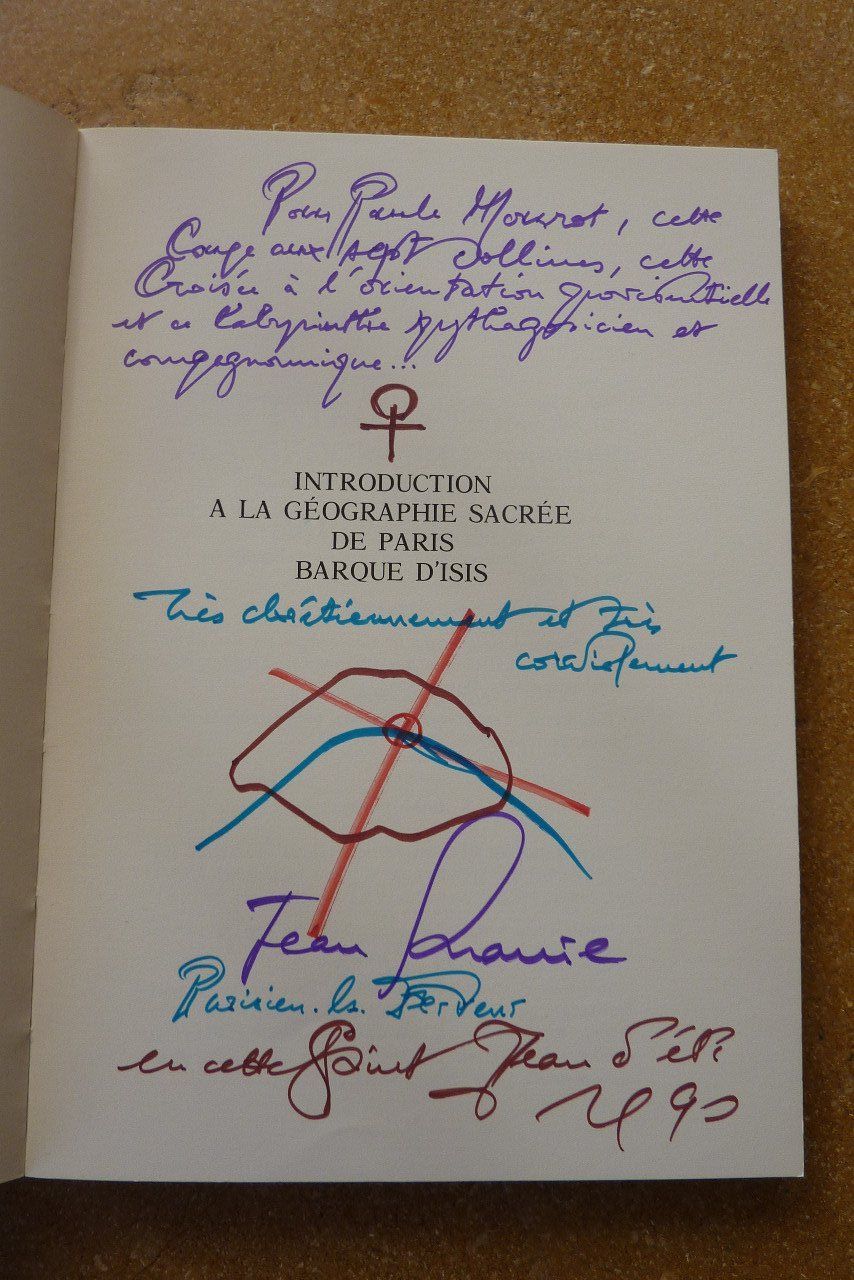 Pour Paule Mourrot, cette
Coupe aux sept Collines, cette
Croisée à l'orientation providentielle
et ce labyrinthe pythagoricien et
compagnonique...
INTRODUCTION
A LA GÉOGRAPHIE SACRÉE
DE PARIS
BARQUE D'ISIS
très chrétiennement et très
cordialement
Jean Phaure
Parisien-la-Ferveur
en cette Saint Jean d'été
1990